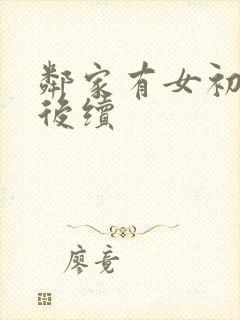 鄰家有女初
後續
廖竟